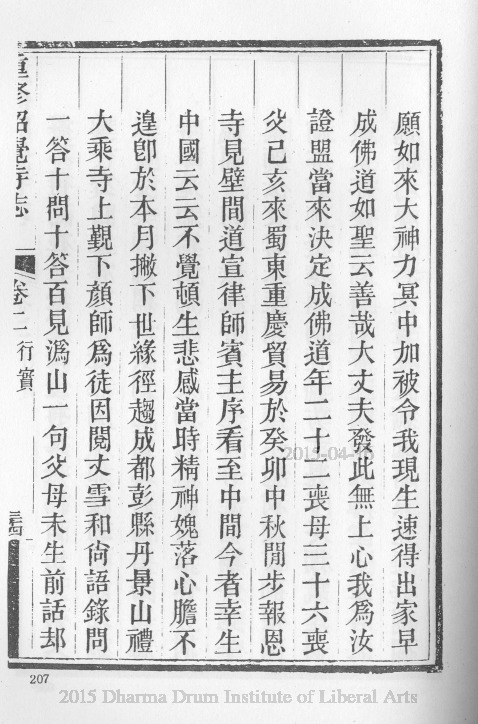 願如來大神力冥中加被令我現生速得出家早
成佛道如聖云善哉大丈夫發此無上心我爲汝
證盟當來決定成佛道年二十二喪母三十六喪
父己亥來蜀東重慶貿易於癸卯中秋閒步報恩
寺見壁間道宣律師賓主序看至中間今者幸生
中國云云不覺頓生悲感當時精神媿落心膽不
遑卽於本月撇下世緣徑趨成都彭縣丹景山禮
大乘寺上覲下顏師爲徒因閱丈雪和尙語錄問
一答十問十答百見潙山一句父母未生前話却
重修昭覺寺志
卷二 行實
207
2012-04-
2015 Dharma Drum Institute of Liberal Arts